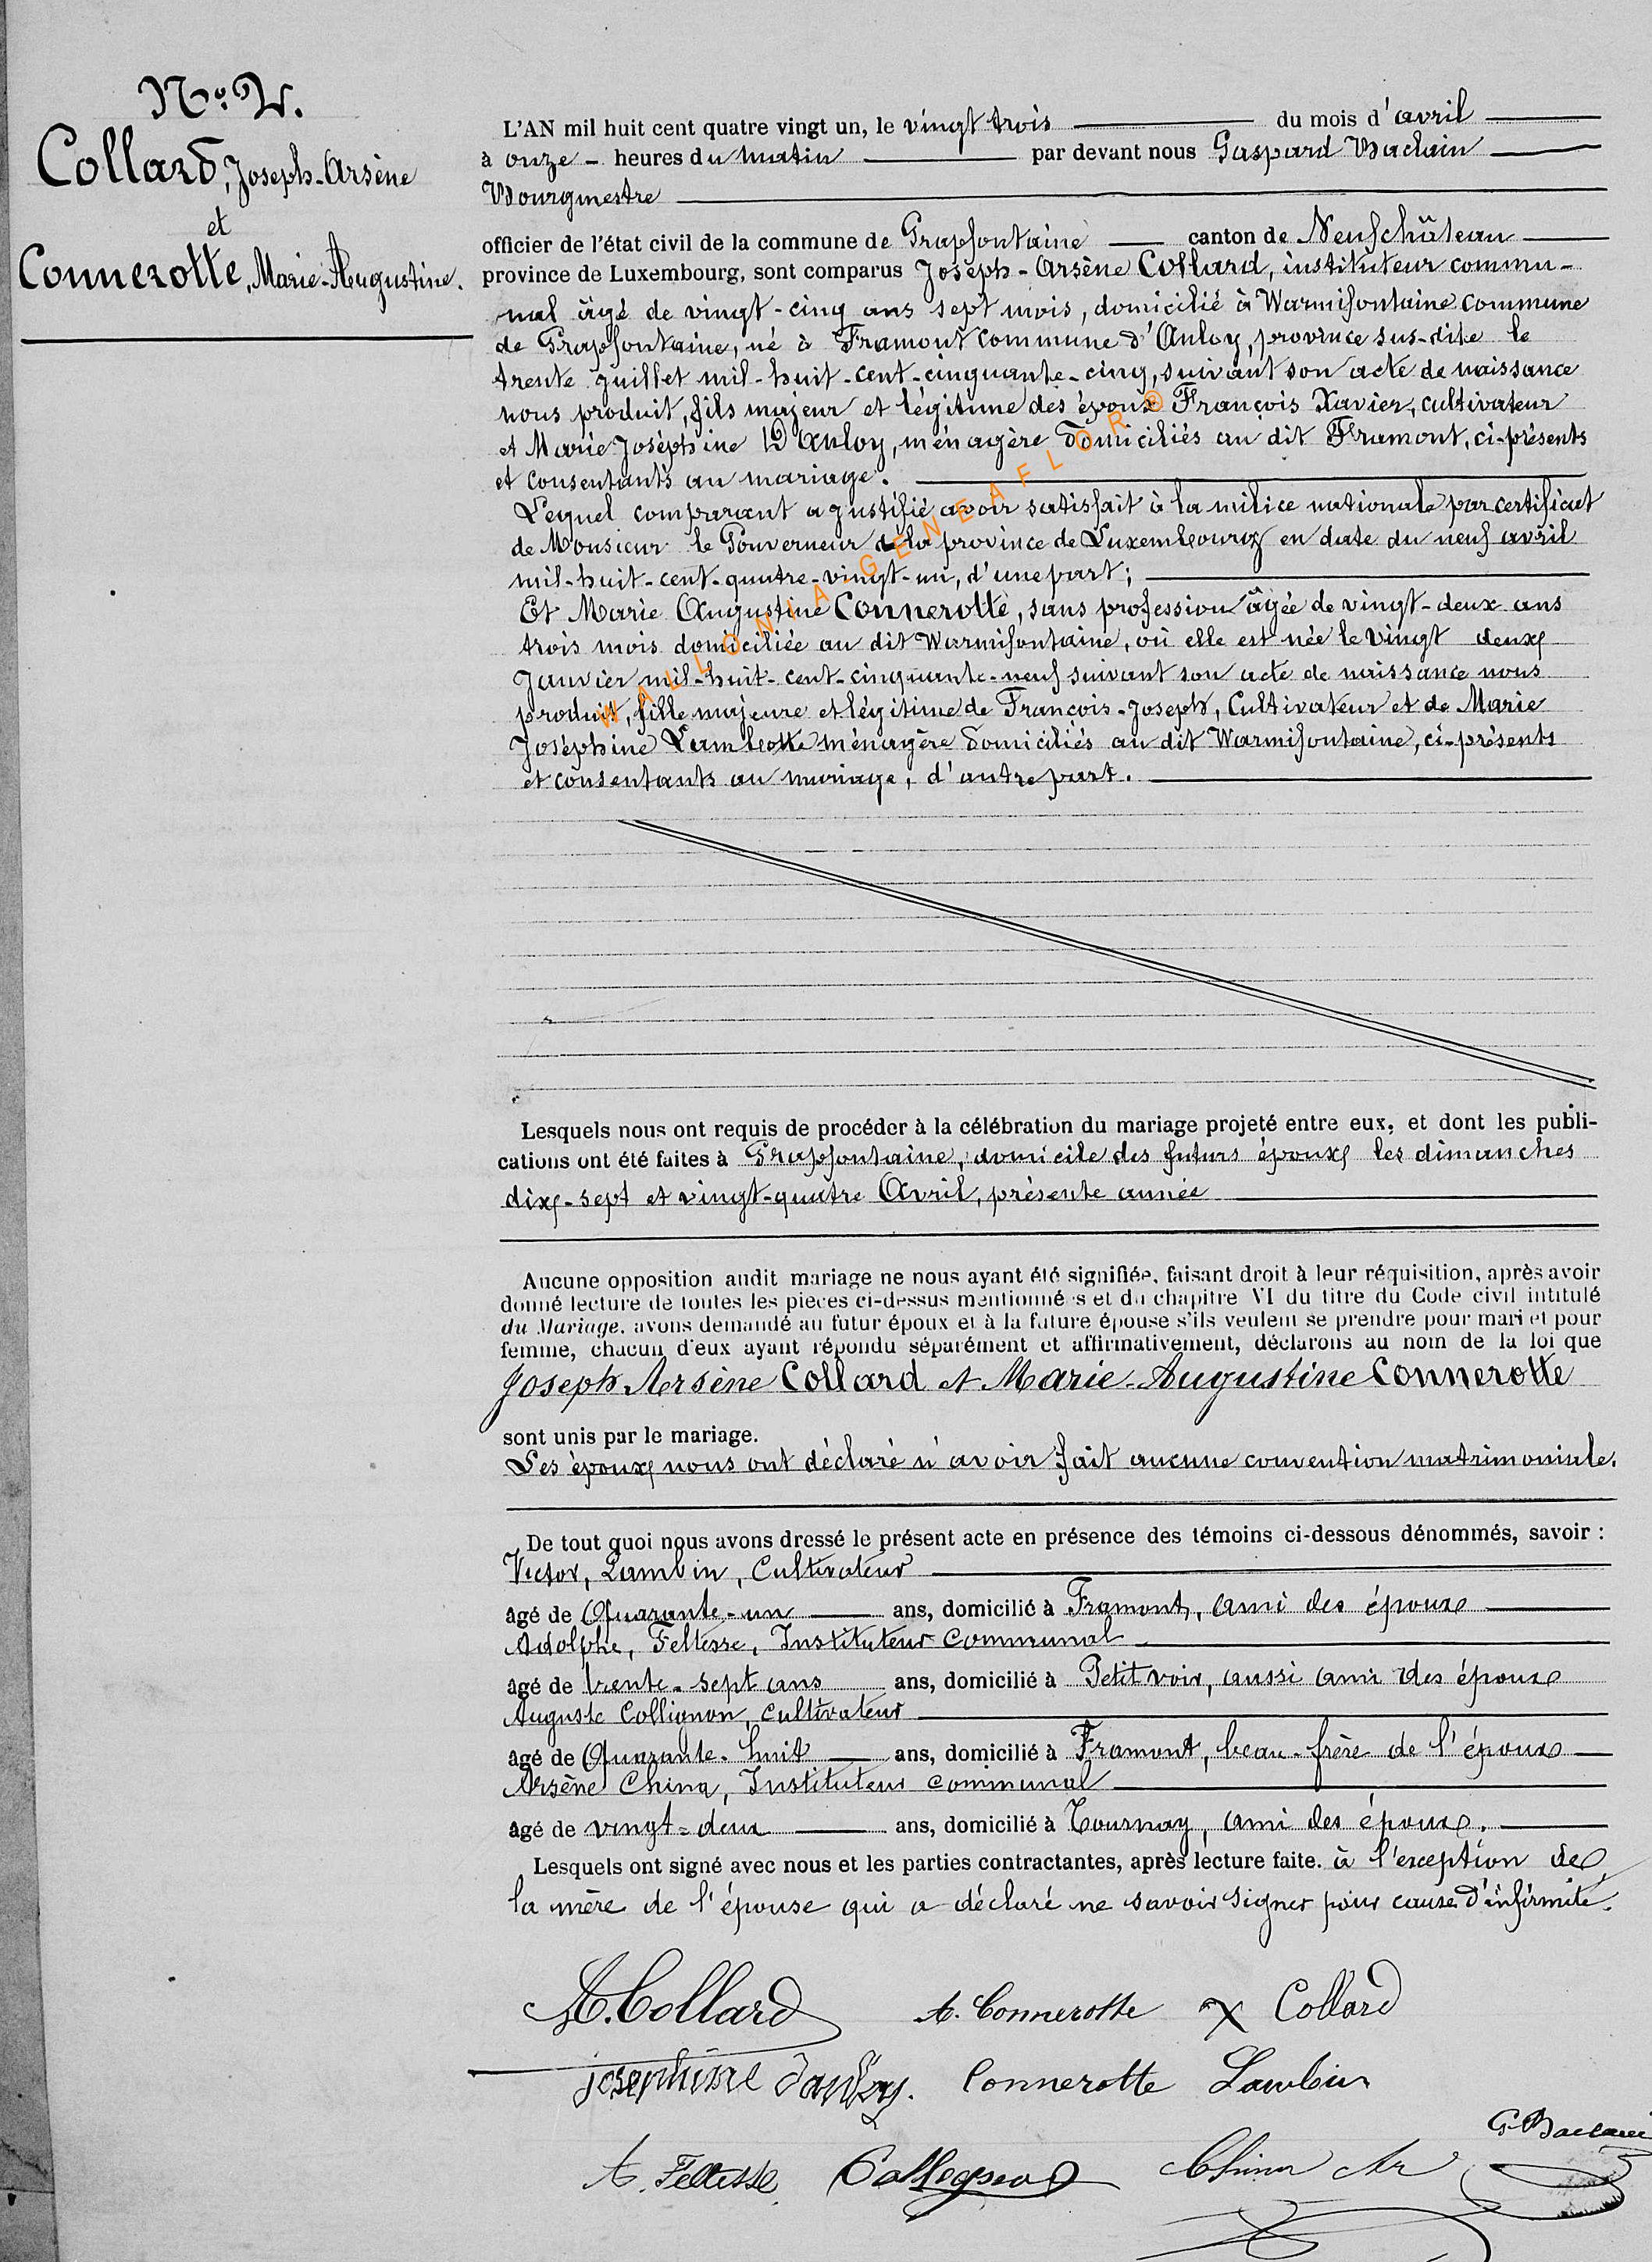 N° 2.
Collard, Joseph-Arsène
et
Connerotte, Marie-Augustine.
L'AN mil huit cent quatre vingt un, le vingt trois du mois d'avril
à onze - heures du matin par devant nous Gaspard Baclain
Bourgmestre
officier de l'état civil de la commune de Grapfontaine canton de Neufchâteau
province de Luxembourg, sont comparus Joseph-Arsène Collard, instituteur commu-
nal âgé de vingt-cinq ans sept mois, domicilié à Warmifontaine commune
de Grapfontaine, né à Framont commune d'Anloy, province sus-dite le
trente juillet mil-huit-cent-cinquante-cinq, suivant son acte de naissance
nous produit, fils majeur et légitime des époux François Xavier, cultivateur
et Marie Joséphine D'Anloy, ménagère domiciliés au dit Framont, ci-présents
et consentants au mariage.
Lequel comparant a justifié avoir satisfait à la milice nationale par certificat
de Monsieur le Gouverneur de la province de Luxembourg en date du neuf avril
mil-huit-cent-quatre-vingt-un, d'une part;
Et Marie Augustine Connerotte, sans profession âgée de vingt-deux ans
trois mois domiciliée au dit Warmifontaine, où elle est née le vingt deux
Janvier mil-huit-cent-cinquante-neuf suivant son acte de naissance nous
produit, fille majeure et légitime de François-Joseph, Cultivateur et de Marie
Joséphine Lambotte ménagère domiciliés au dit Warmifontaine, ci-présents
et consentants au mariage, d'autre part.
WALLONIA-GENEAFLOR©
Lesquels nous ont requis de procéder à la célébration du mariage projeté entre eux, et dont les publi-
cations ont été faites à Grapfontaine, domicile des futurs époux les dimanches
dix-sept et vingt-quatre Avril, présente année
Aucune opposition audit mariage ne nous ayant été signifiée, faisant droit à leur réquisition, après avoir
donné lecture de toutes les pieces ci-dessus mentionnées et du chapitre VI du titre du Code civil intitulé
du Mariage, avons demandé au futur époux et à la future épouse s'ils veulent se prendre pour mari et pour
femme, chacun d'eux ayant répondu séparément et affirmativement, déclarons au nom de la loi que
Joseph-Arsène Collard et Marie-Augustine Connerotte
sont unis par le mariage.
Les époux nous ont déclaré n'avoir fait aucune convention matrimoniale.
De tout quoi nous avons dressé le présent acte en présence des témoins ci-dessous dénommés, savoir :
Victor, Lambin, Cultivateur
âgé de Quarante-un ans, domicilié à Framont, ami des époux
Adolphe, Feltesse, Instituteur communal
âgé de trente-sept ans ans, domicilié à Petitvoir, aussi ami des époux
Auguste Collignon, cultivateur
âgé de Quarante-huit ans, domicilié à Framont, beau-frère de l'époux
Arsène China, Instituteur communal
âgé de vingt-deux ans, domicilié à Tournay, ami des époux.
Lesquels ont signé avec nous et les parties contractantes, après lecture faite. à l'exception de
la mère de l'épouse qui a déclaré ne savoir signer pour cause d'infirmité.
A. Collard A. Connerotte X Collard
josephine danloy. Connerotte Lambin
G. Baclain
A. Feltesse Collignon China Ar